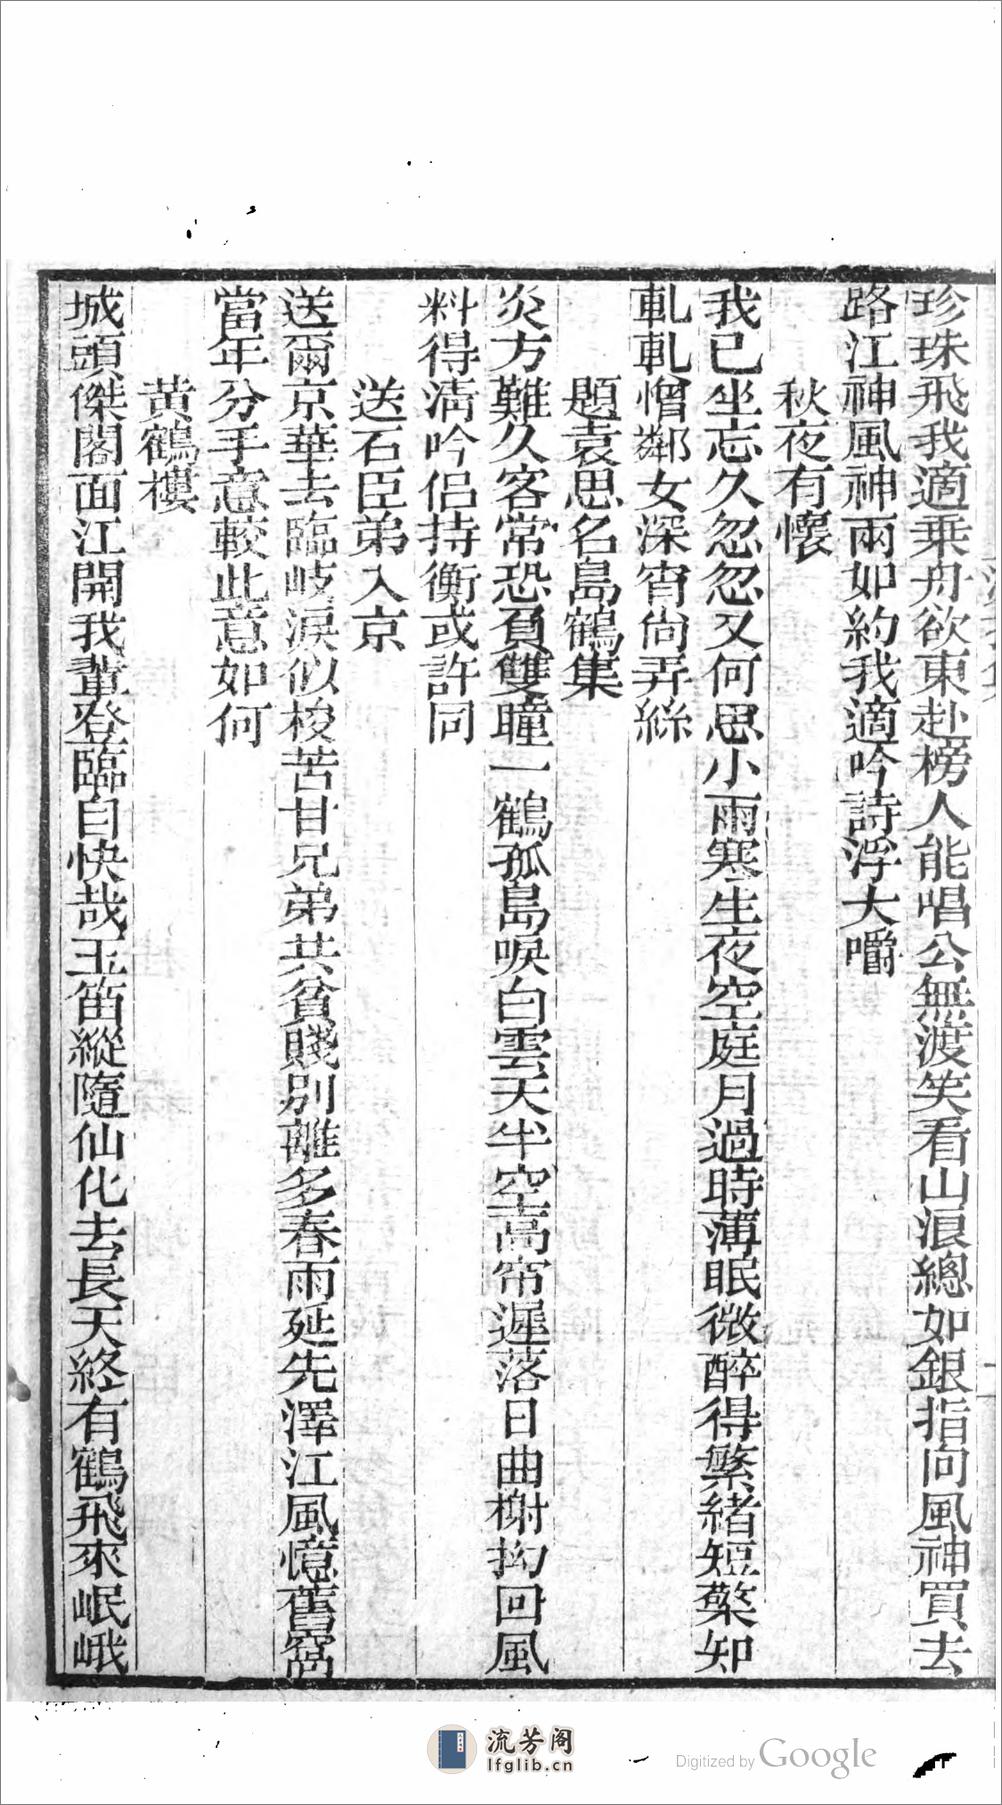 珍珠飛我適乗舟欲東赴榜人能唱公無渡笑看山浪總如銀指向風神買去
路江神風神兩如約我適吟詩浮大嚼
秋夜有懷
我已坐忘久忽忽又何思小雨寒生夜空庭月過時薄眠微醉得繁緒短檠知
軋軋憎鄰女深宵尙弄絲
題袁思名島鶴集
炎方難久客常恐負雙瞳一鶴孤島唳白雲天半空高帘遲落日曲榭拗回風
料得淸吟侶持衡或許同
送石臣弟入京
送爾京華去臨岐淚似梭苦甘兄弟共貧賤別離多春雨延先澤江風憶舊窩
當年分手意較此意如何
黄鶴樓
城頭傑閣面江開我輩登臨自快哉玉笛縱隨仙化去長天終有鶴飛來岷峨
流芳阁
lfglib.cn
Digitized by Google